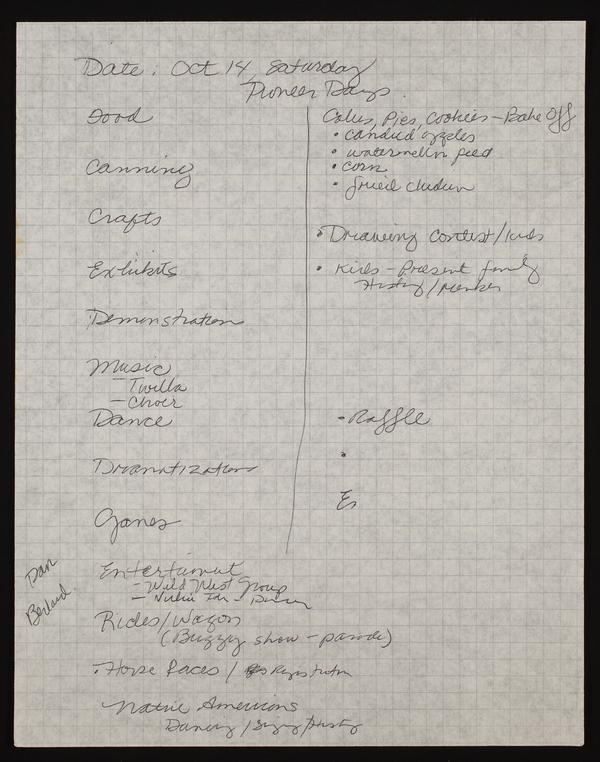 Date: Oct 14, Saturday
Pioneer Days.
Food
Canning
Crafts
Exhibits
Demonstration
Music
- Twilla
- Choir
Dance
Dramatization
Games
Entertainment
- Wild West Group
Rides/Wagon
(Buggy show - parade)
• Horse Races / Registration
Native Americans
Dancing /
Cakes, Pies, Cookies - Bake Off
• candied apples
• watermelon feed
• corn
• fried chicken
• Drawing Contest/kids
• Kids - Present family
History/
• Raffle
•
Es
Dan